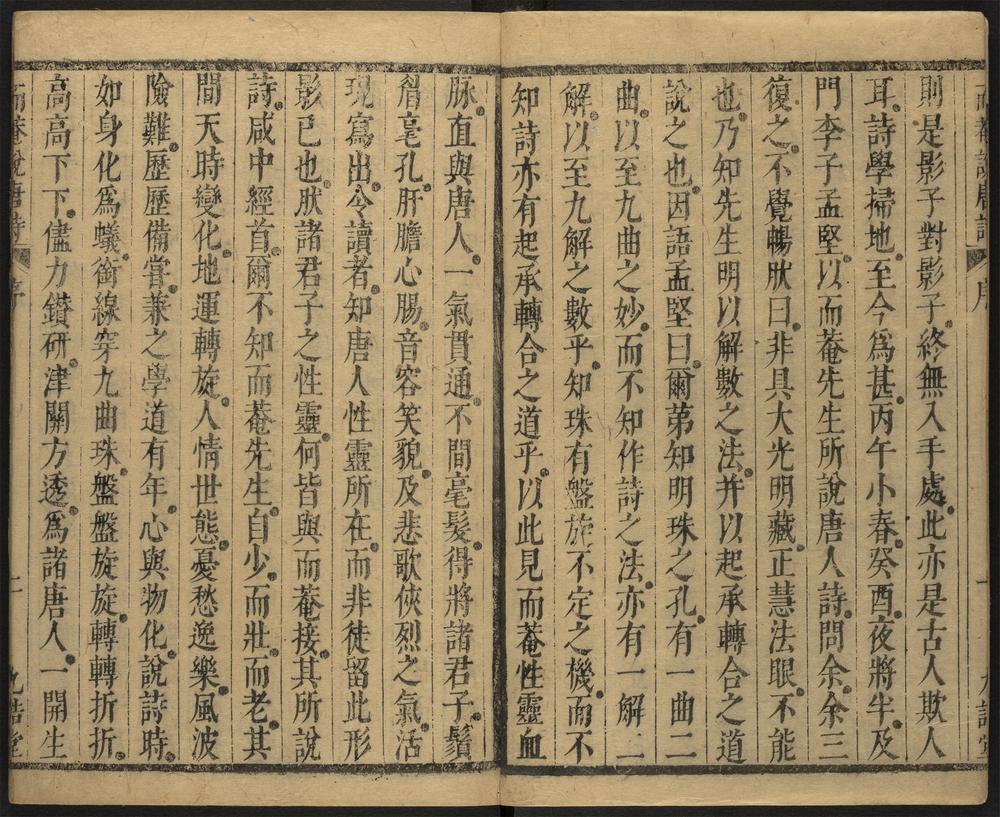 而菴說唐詩 序 一 九誥堂
則是影子對影子終無入手處此亦是古人欺人
耳詩學掃地至今爲甚丙午小春癸酉夜將半及
門李子孟堅以而菴先生所說唐人詩問余余三
復之不覺暢肰曰非具大光明藏正慧法眼不能
也乃知先生明以解數之法幷以起承轉合之道
說之也因語孟堅曰爾第知明珠之孔有一曲二
曲以至九曲之妙而不知作詩之法亦有一解二
解以至九解之數乎知珠有盤旋不定之機而不
知詩亦有起承轉合之道乎以此見而菴性靈血
脉直與唐人一氣貫通不間毫髮得將諸君子鬚
眉毫孔肝膽心腸音容笑貌及悲歌俠烈之氣活
現寫出令讀者知唐人性靈所在而非徒留此形
影已也肰諸君子之性靈何皆與而菴接其所說
詩咸中經首爾不知而菴先生自少而壯而老其
間天時變化地運轉旋人情世態憂愁逸樂風波
險難歷歷備嘗兼之學道有年心與物化說詩時
如身化爲蟻銜線穿九曲珠盤盤旋旋轉轉折折
高高下下儘力鑚研津關方透爲諸唐人一開生
而菴說唐詩 序 二 九誥堂